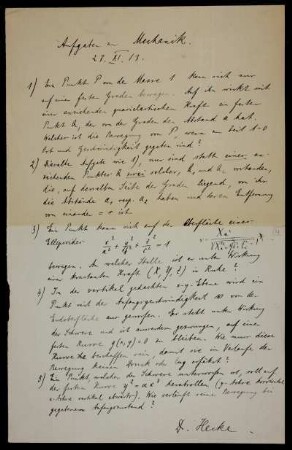 Aufgaben zur Mechanik.
27. XI. 13.
1) Ein Punkt P von der Masse 1 kann sich nur
auf einer festen Geraden bewegen. Auf ihn wirkt mit
anziehenden gravitationellen Kraft ein fester
Punkt A, der von der Geraden den Abstand a hat.
Welches ist die Bewegung von P, wenn zur Zeit t=0
Ort und Geschwindigkeit gegeben sind?
2) Dieselbe Aufgabe wie 1), nur sind statt eines an-
ziehenden Punktes A zwei solcher, A₁ und A₂ vorhanden,
die, auf derselben Seite der Geraden liegend, von ihr
die Abstände a₁ resp. a₂ haben und deren Entfernung
von einander = r ist.
3) Ein Punkt kann sich auf der Oberfläche eines
Ellipsoides x²/a² + y²/b² + z²/c² = 1
bewegen. An welcher Stelle ist er unter Wirkung
einer konstanten Kraft (X, Y, Z) in Ruhe?
4) In der vertikal gedachten x-y Ebene wird ein
Punkt mit der Anfangsgeschwindigkeit von der
Erdoberfläche aus geworfen. Er steht unter Wirkung
der Schwere und ist ausserdem gezwungen, auf einer
festen Kurve g(x,y)=0 zu bleiben. Wie muss diese
Kurve beschaffen sein, damit sie im Verlaufe der
Bewegung keinen Druck erfährt?
5) Ein Punkt, welcher der Schwere unterworfen ist, soll auf
der festen Kurve y² = αx² herabrollen
Wie verläuft seine Bewegung bei
gegebenem Anfangszustand?
Dr. Hecke